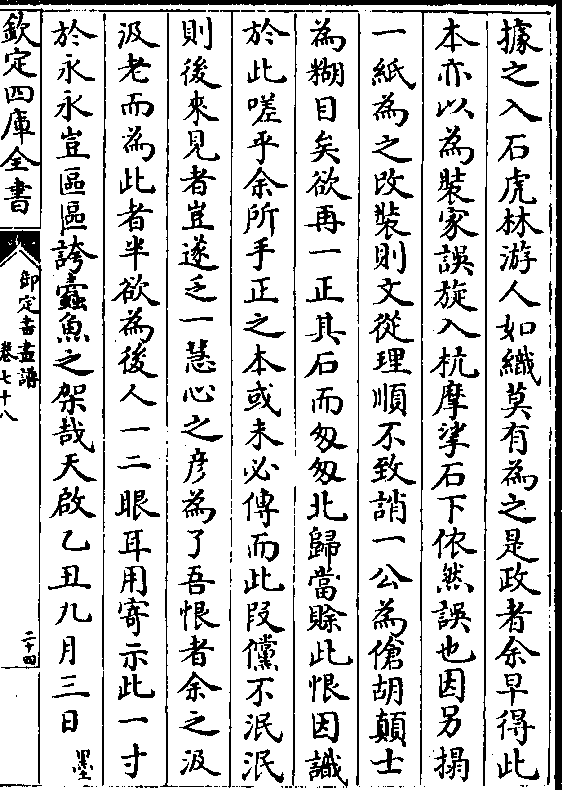 據之入石虎林游人如織莫有為之是政者余早得此
本亦以為裝家誤旋入杭摩挲石下依然誤也因另搨
一紙為之改裝則文從理順不致誚一公為傖胡顛士
為糊目矣欲再一正其石而匆匆北歸當賒此恨因識
於此嗟乎余所手正之本或未必傳而此段儻不泯泯
則後來見者豈遂乏一慧心之彦為了吾恨者余之汲
汲老而為此者半欲為後人一二眼耳用寄示此一寸
於永永豈區區誇蠧魚之架哉天啟乙丑九月三日墨
欽定四庫全書
御定書畫譜
卷七十八
二十四